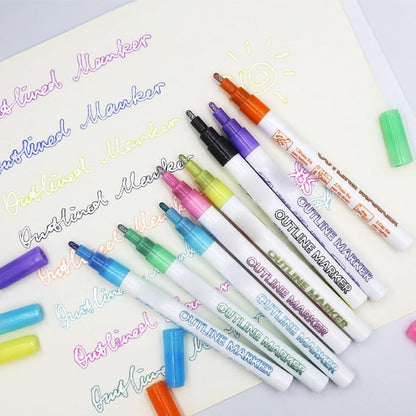 Outlined Marker
Outlined Marker
Outlined Marker
Outlined Marker
Outlined Marker
Outlined Marker
Outlined
OUTLINE MARKER
OUTLINE MARKER
OUTLINE MARKER
OUTLINE MARKER
OUTLINE MARKER
OUTLINE MARKER
OUTLINE MARKER